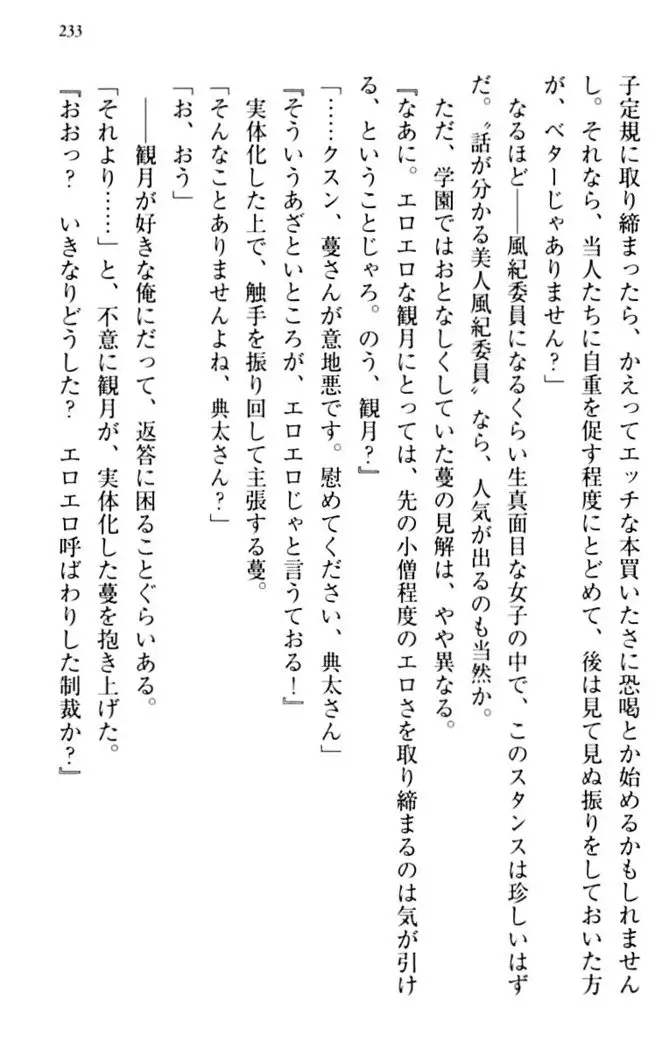 233
子定規に取り締まったら、かえってエッチな本買いたさに恐喝とか始めるかもしれません
し。それなら、当人たちに自重を促す程度にとどめて、後は見て見ぬ振りをしておいた方
が、ベターじゃありません？」
なるほど――風紀委員になるくらい生真面目な女子の中で、このスタンスは珍しいはず
だ。〝話が分かる美人風紀委員〟なら、人気が出るのも当然か。
ただ、学園ではおとなしくしていた蔓の見解は、やや異なる。
『なあに。エロエロな観月にとっては、先の小僧程度のエロさを取り締まるのは気が引け
る、ということじゃろ。のう、観月？』
「……クスン、蔓さんが意地悪です。慰めてください、典太さん」
『そういうあざといところが、エロエロじゃと言うておる！』
実体化した上で、触手を振り回して主張する蔓。
「そんなことありませんよね、典太さん？」
「お、おう」
――観月が好きな俺にだって、返答に困ることぐらいある。
「それより……」と、不意に観月が、実体化した蔓を抱き上げた。
『おおっ？　いきなりどうした？　エロエロ呼ばわりした制裁か？』